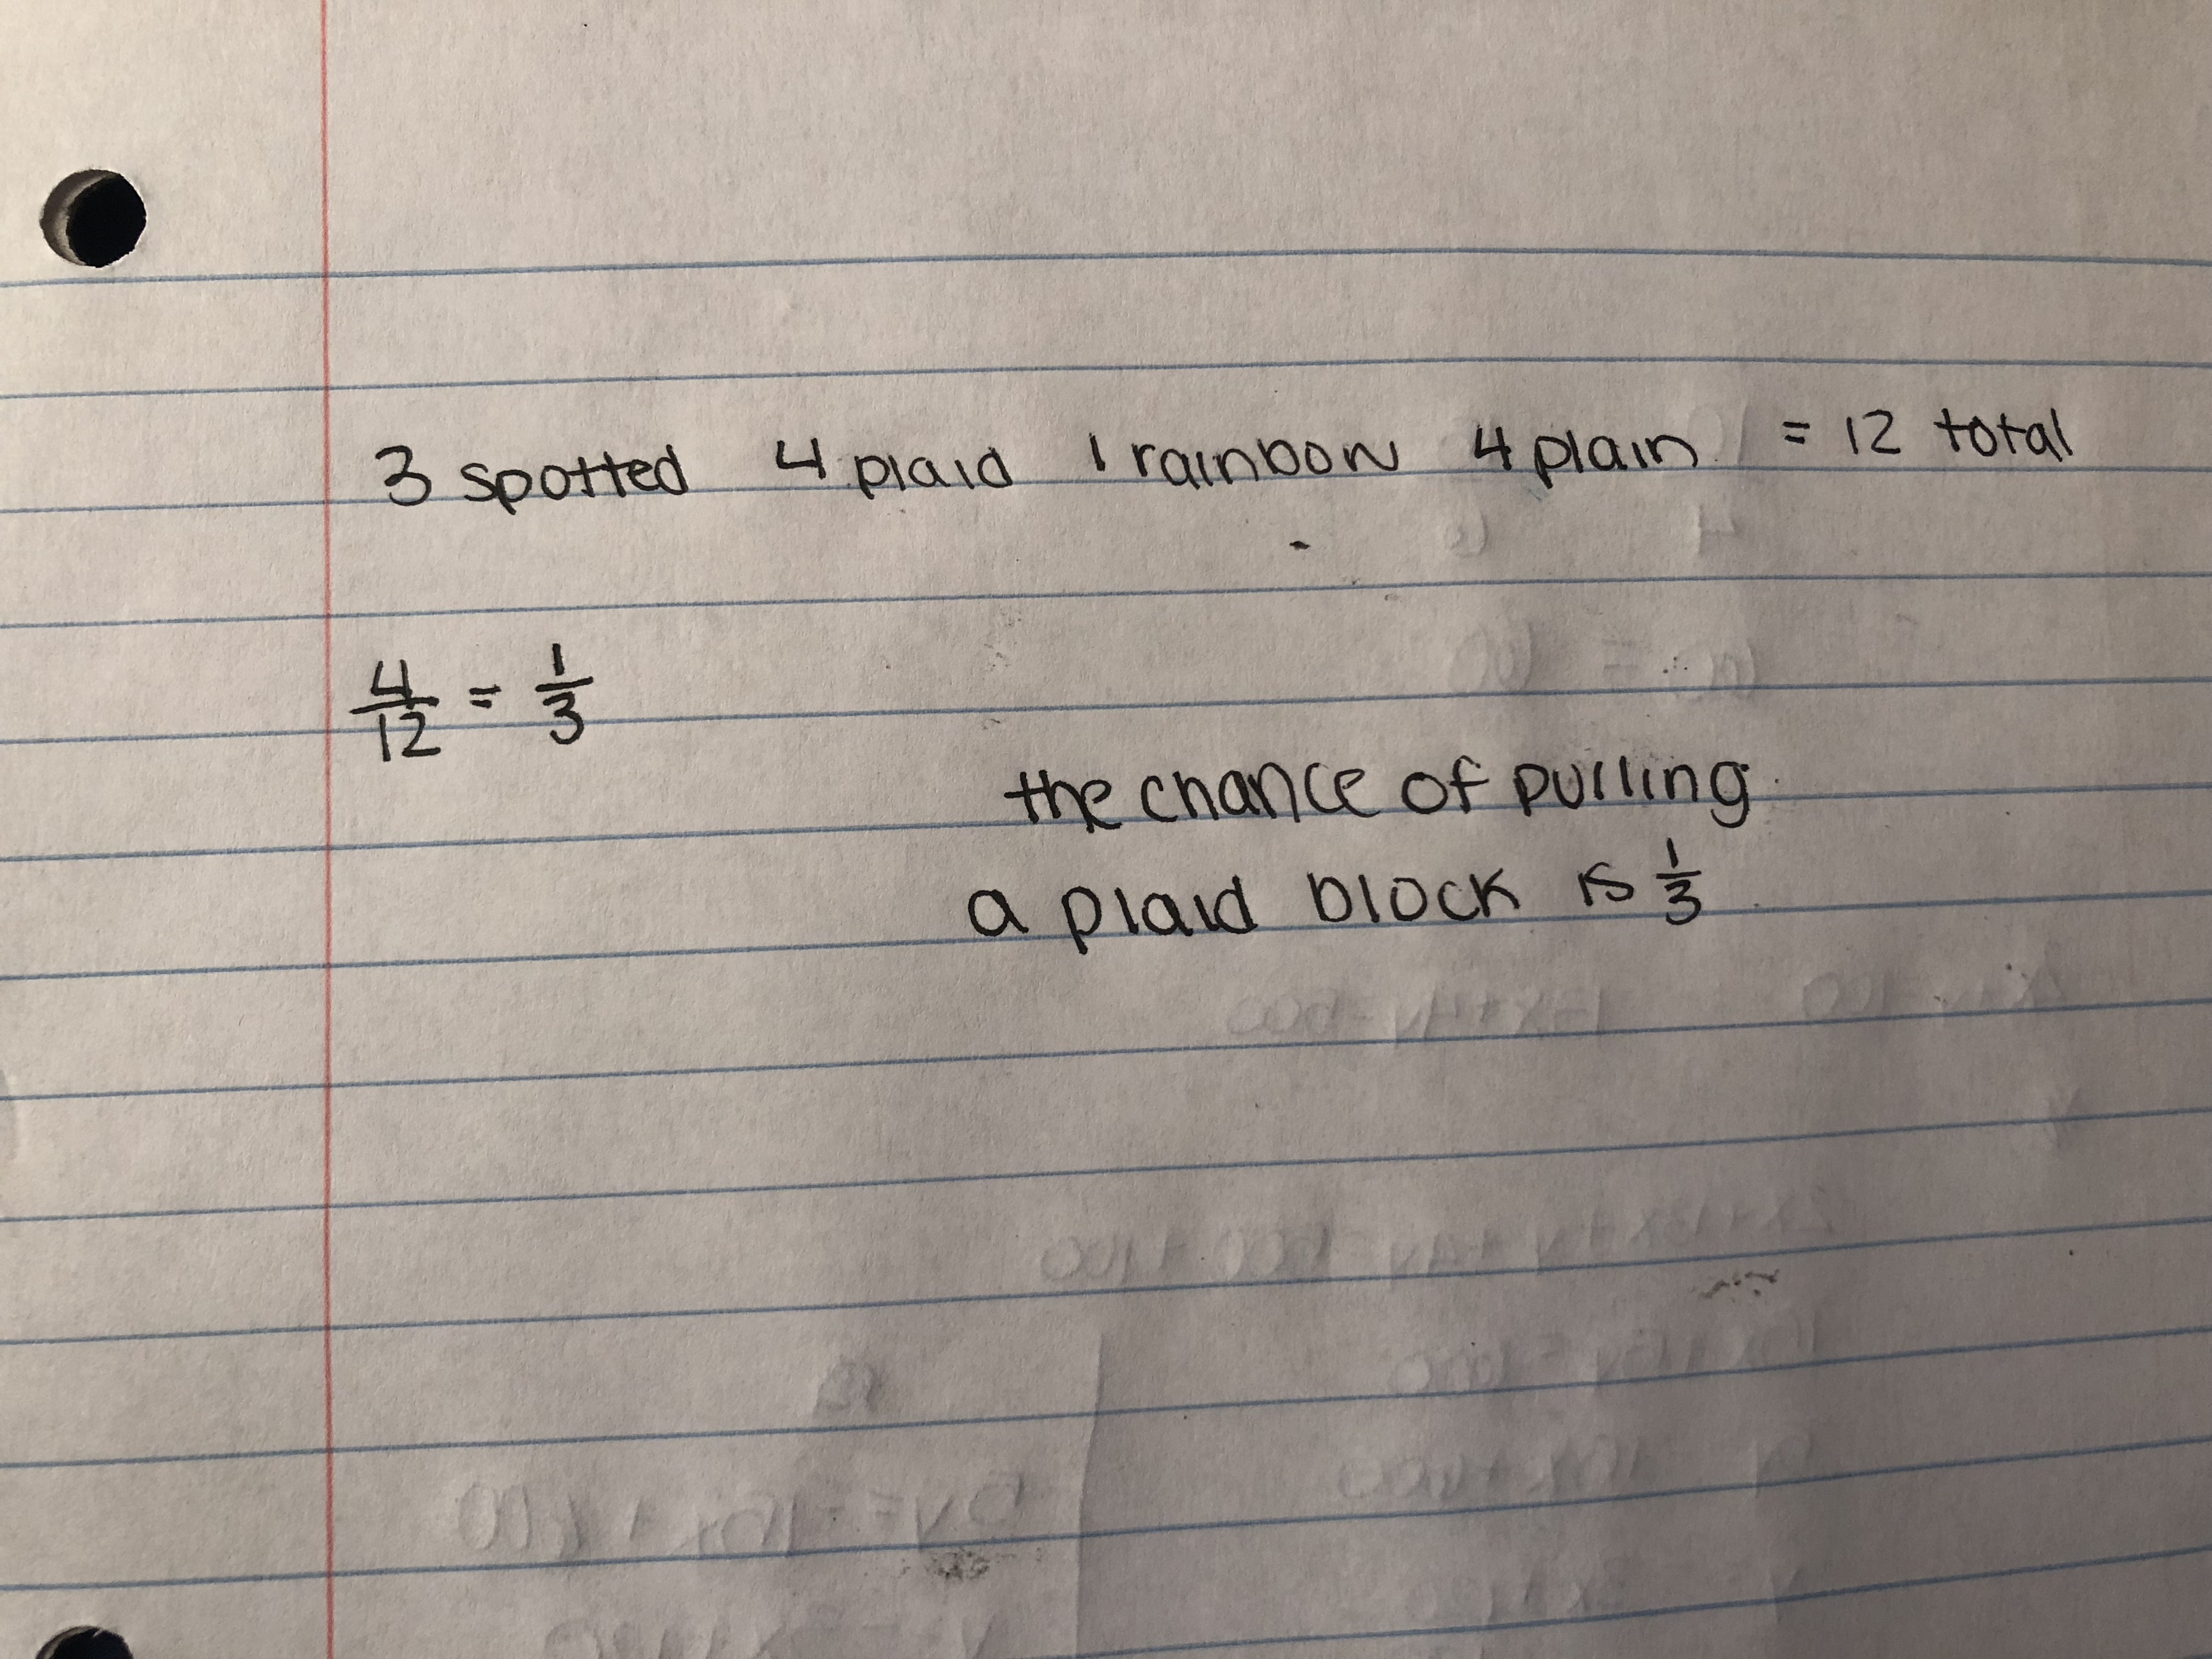 3 spotted 4 plaid 1 rainbow 4 plain = 12 total
4/12 = 1/3
the chance of pulling
a plaid block is 1/3